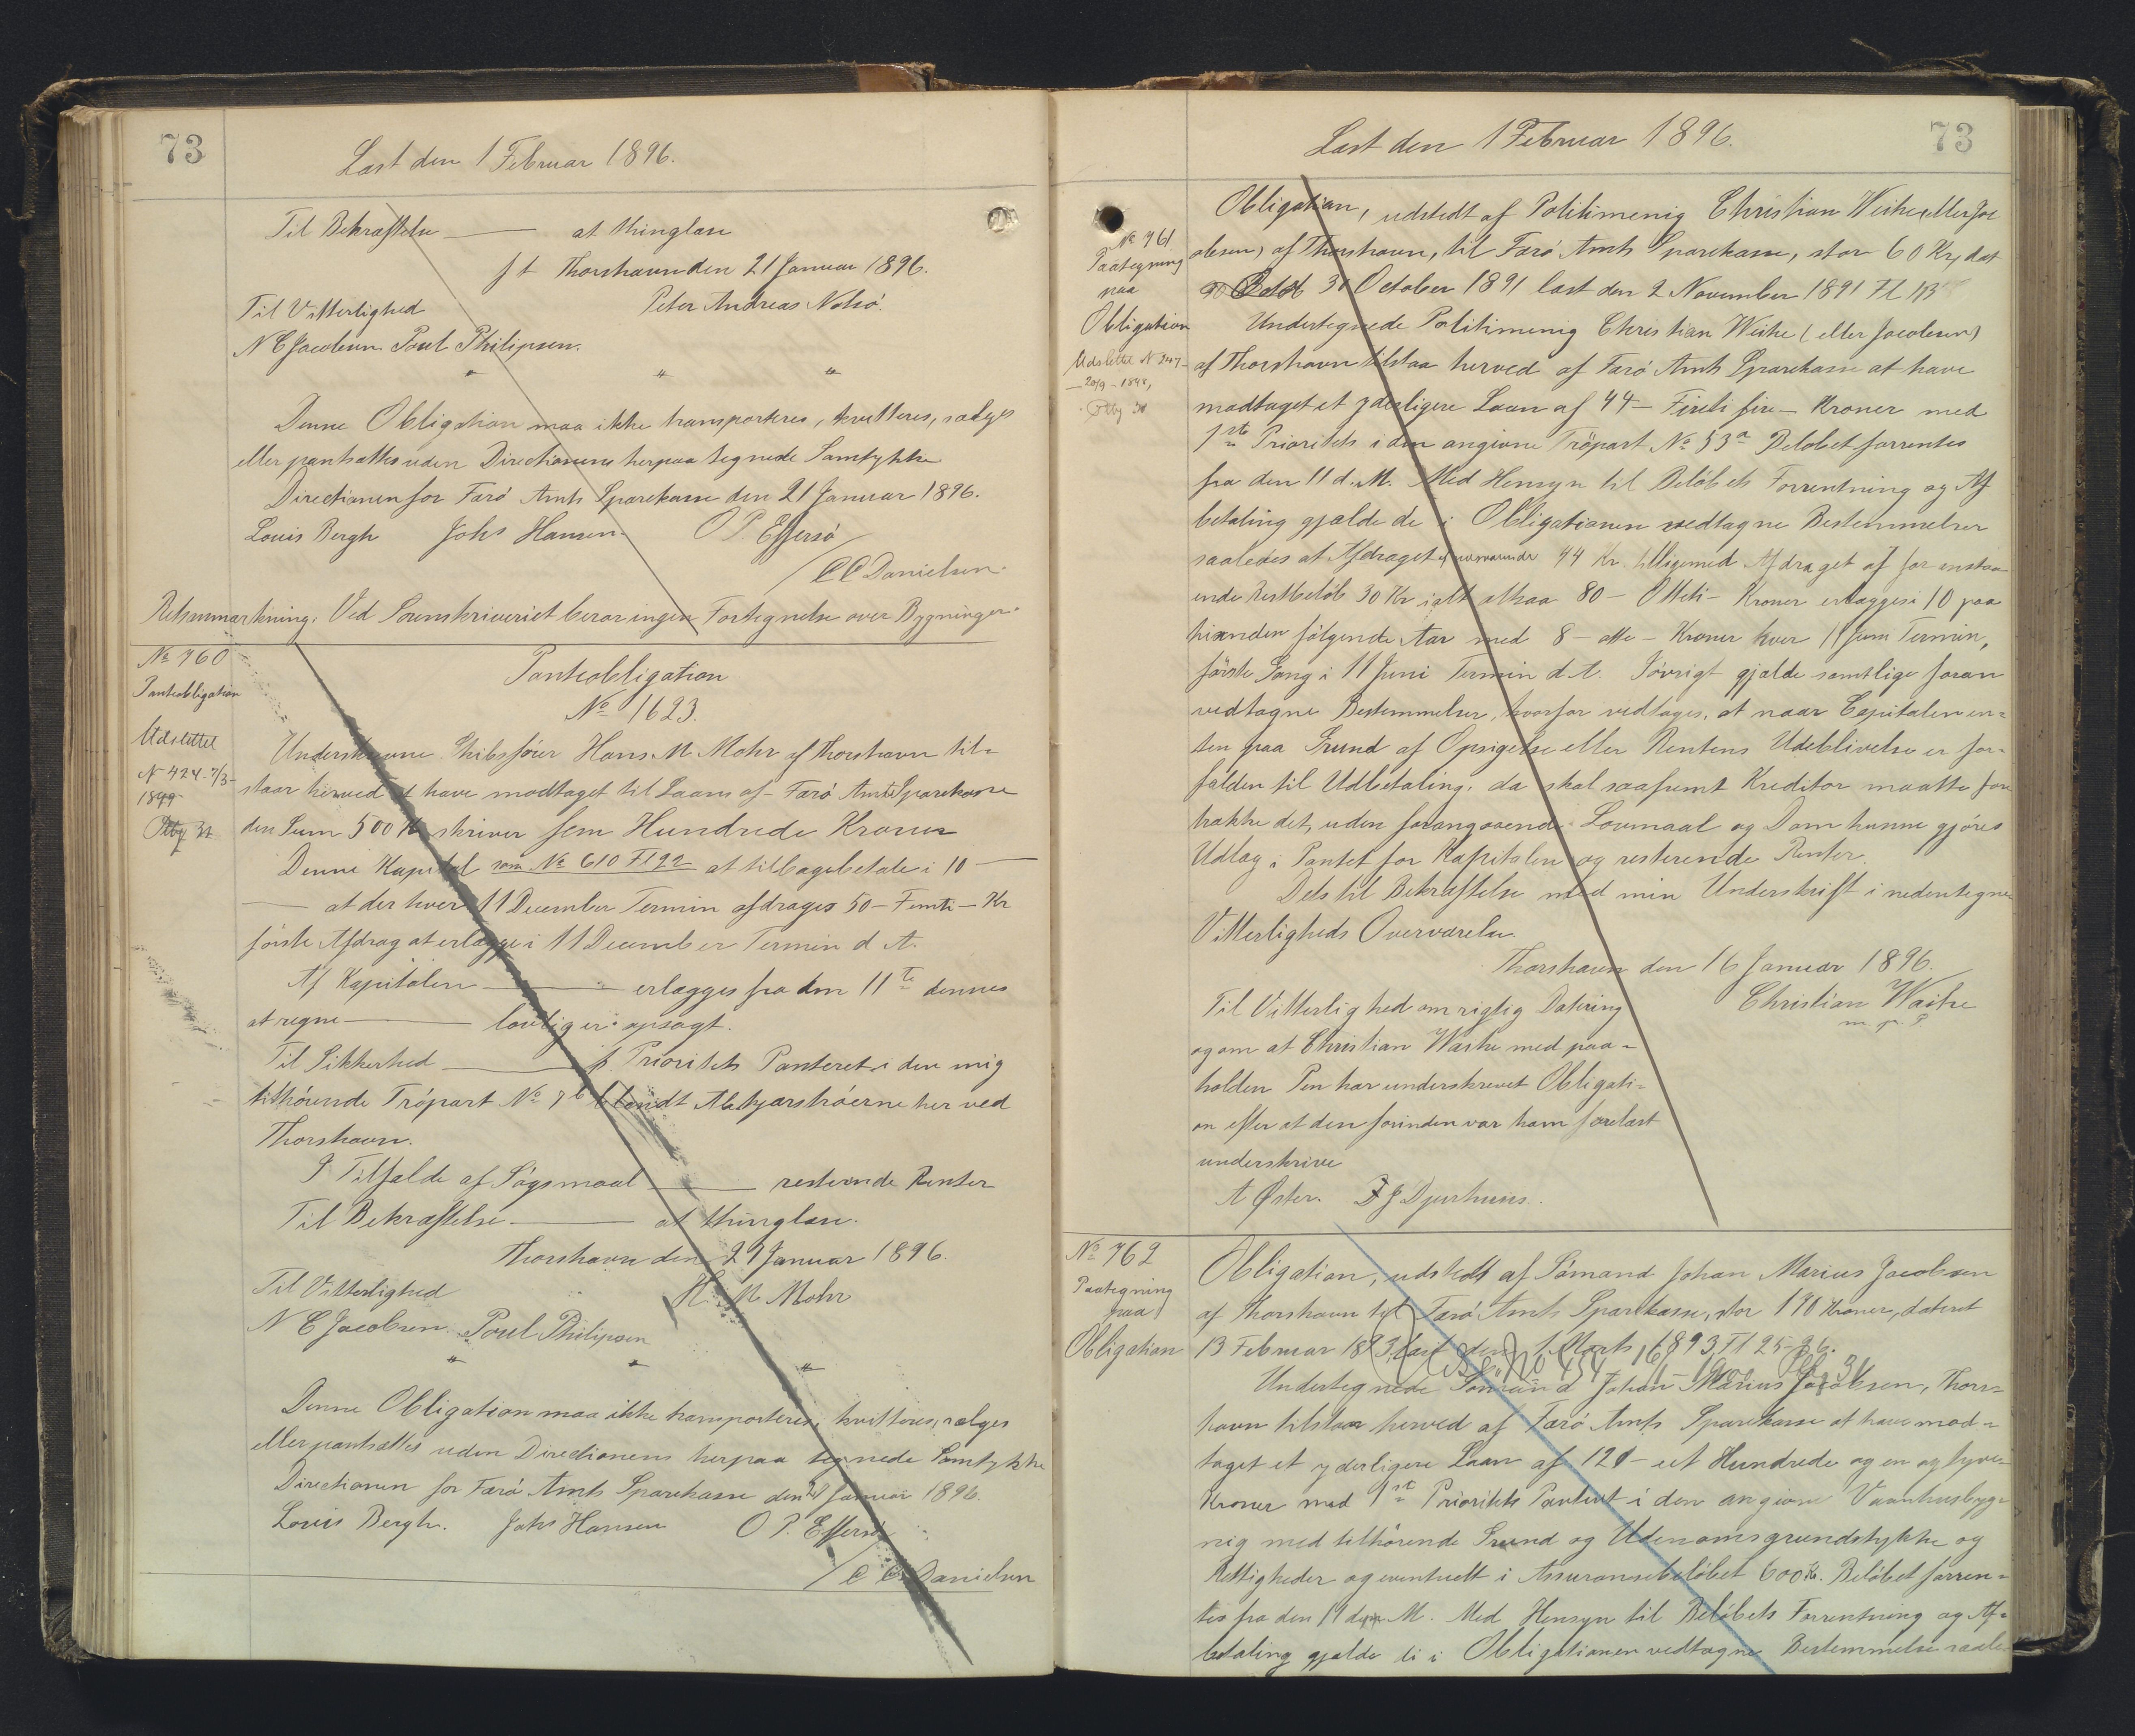 73
Læst den 1 Februar 1896.
Til Bekræftelse — at thinglæse
p t Thorshavn den 21 Januar 1896.
Til Vitterlighed Peter Andreas Nolsø.
N C Jacobsen. Poul Philipsen.
" " "
Denne Obligation maa ikke transporteres, kvitteres, sælges
eller pantsættes uden Directionens herpaa tegnede Samtykke
Directionen for Færø Amts Sparekasse den 21 Januar 1896.
Louis Bergh Johs Hansen. O P. Effersø
/ C C Danielsen.
Retsanmærkning. Ved Sorenskriveriet beror ingen Fortegnelse over Bygninger.
No 760
Panteobligation
Udslettet
N 424 - 7/3 -
1899
Ptbg 31
Panteobligation
No 1623.
Underskrevne Skibsfører Hans M. Mohr af Thorshavn til=
staar herved at have modtaget til Laans af Færø Amts Sparekasse
den Sum 500 Kr skriver fem Hundrede Kroner
Denne Kapital som No 610 Fl 22 at tilbagebetale i 10 —
— at der hver 11 December Termin afdrages 50 – Femti – Kr
første Afdrag at erlægge i 11 December Termin d A.
Af Kapitalen — erlægges fra den 11te dennes
at regne — lovlig er opsagt.
Til Sikkerhed — p. Prioritets Panteret i den mig
tilhørende Trøpart No 7b blandt Abekjærstrøerne her ved
Thorshavn.
I Tilfælde af Søgsmaal — resterende Renter
Til Bekræftelse — at thinglæse.
Thorshavn den 29 Januar 1896.
Til Vitterlighed H. M Mohr
N C Jacobsen. Poul Philipsen
" " "
Denne Obligation maa ikke transporteres, kvitteres, sælges
eller pantsættes uden Directionens herpaa tegnede Samtykke
Directionen for Færø Amts Sparekasse den 29 Januar 1896.
Louis Bergh. Johs Hansen O P. Effersø
/ C C Danielsen
Læst den 1 Februar 1896.
73
No 761
Paategning
paa
Obligation
Udslettet N 247 -
- 20/9 - 1898,
Ptbg 31
Obligation, udstedt af Politimenig Christian Weihe (eller Jac
obsen) af Thorshavn, til Færø Amts Sparekasse, stor 60 Kr, dat
30 October 1891 læst den 2 November 1891 Fl 113
Undertegnede Politimenig Christian Weihe (eller Jacobsen)
af Thorshavn tilstaa herved af Færø Amts Sparekasse at have
modtaget et yderligere Laan af 44 – Firti fire – Kroner med
1ste Prioritets i den angivne Trøpart No 53a Beløbet forrentes
fra den 11 d. M. Med Hensyn til Beløbets Forrentning og Af
betaling gjælde de i Obligationen vedtagne Bestemmelser
saaledes at Afdraget af nærværende 44 Kr. tilligemed Afdraget af foranstaa
ende Restbeløb 30 Kr ialt altsaa 80 – Otteti – Kroner erlægges i 10 paa
hinanden følgende Aar med 8 – otte – Kroner hver 11 Juni Termin,
første Gang i 11 Juni Termin d. A. Iøvrigt gjælde samtlige foran
vedtagne Bestemmelser, hvorfor vedtages, at naar Capitalen en=
ten paa Grund af Opsigelse eller Rentens Udeblivelse er for=
falden til Udbetaling, da skal saafremt Kreditor maatte fore
trække det, uden forangaaende Lovmaal og Dom kunne gjøres
Udlæg i Pantet for Kapitalen og resterende Renter.
Dets til Bekræftelse med min Underskrift i nedentegne
Vitterligheds Overværelse.
Thorshavn den 16 Januar 1896.
Til Vitterlighed om rigtig Datering Christian Weihe
m. p. P
og om at Christian Weihe med paa=
holden Pen har underskrevet Obligati=
on efter at den forinden var ham forelæst
underskrive
A Øster. D J Djurhuus.
No 762
Paategning
paa
Obligation
Obligation, udstedt af Sømand Johan Marius Jacobsen
af Thorshavn til Færø Amts Sparekasse, stor 190 Kroner, dateret
13 Februar 1893, læst den 1 Marts 1893 Fl 25-26.
No 454 16/11 - 1900 Ptbg 31
Undertegnede Sømand Johan Marius Jacobsen, Thors=
havn tilstaa herved af Færø Amts Sparekasse at have mod=
taget et yderligere Laan af 121 – et Hundrede og en og tyve –
Kroner med 1ste Prioritets Panteret i den angivne Vaanhusbyg=
nig med tilhørende Grund og Udenomsgrundstykke og
Rettigheder og eventuelt i Assurancebeløbet 600 Kr. Beløbet forren=
tes fra den 11 M. Med Hensyn til Beløbets Forrentning og Af=
betaling gjælde de i Obligationen vedtagne Bestemmelse saale